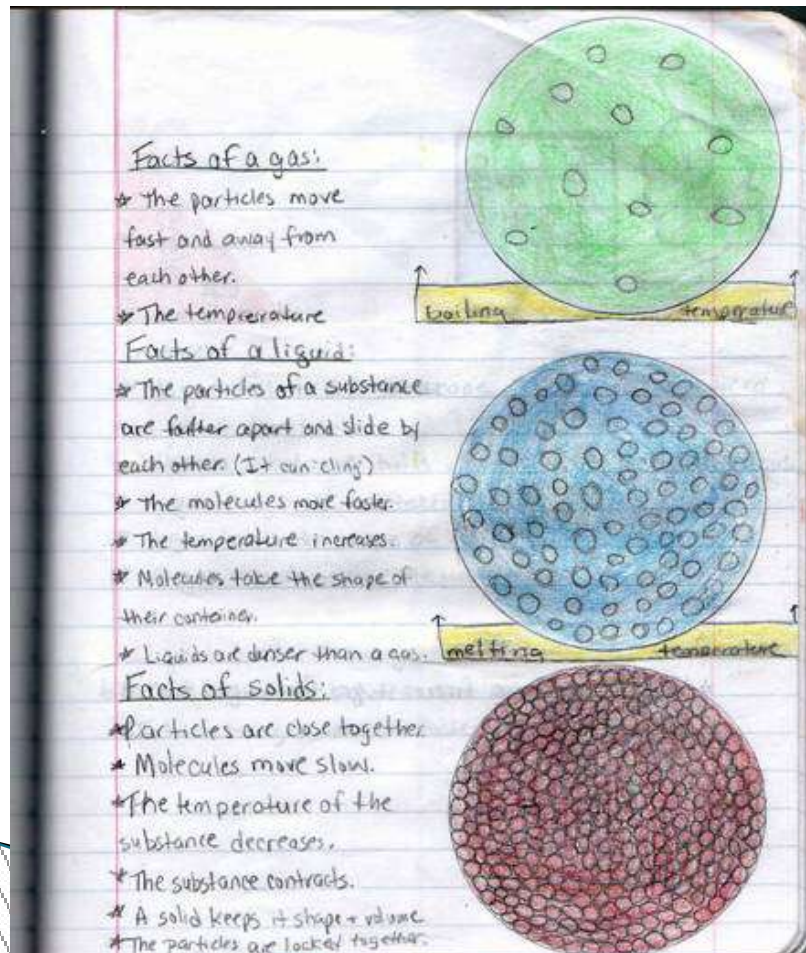 Facts of a gas:
* The particles move
fast and away from
each other.
* The temprerature
boiling temperature
Facts of a liquid:
* The particles of a substance
are farther apart and slide by
each other. (It can cling)
* The molecules move faster.
* The temperature increases.
* Molecules take the shape of
their container.
* Liquids are denser than a gas.
melting temperature
Facts of solids:
* Particles are close together
* Molecules move slow.
* The temperature of the
substance decreases.
* The substance contracts.
* A solid keeps it shape + volume
* The particles are locked together.